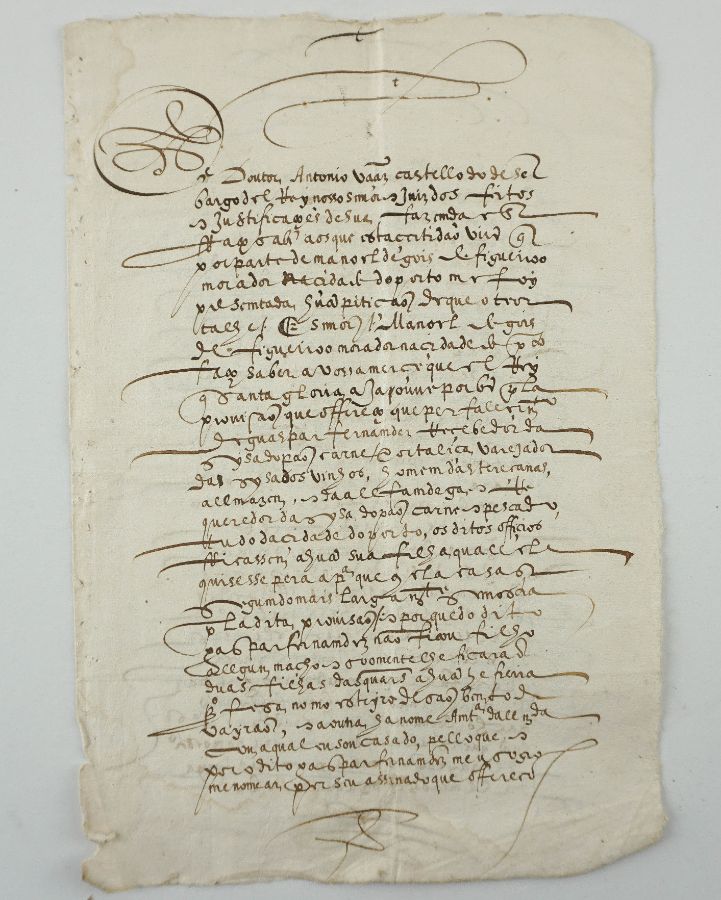 Doutor Antonio Vaaz castello do desem
bargo del Rey nosso snõr e Juiz dos feitos
e Justificações de sua fazenda etc
faço saber aos que esta certidaõ virẽ q̃
por parte de manoel de gois de figueiroo
morador na cidade do porto me foy
presentada hũa pitiçaõ de que o theor
tal he / Snõr Manoel de gois
de figueiroo morador na cidade do porto
faço saber a vossa merce que el Rey
q̃ santa gloria aja ouve por bẽ pla
provisaõ que offereço que per falecimto
de guaspar fernandez Recebedor da
sysa do paõ carne e ortaliça varejador
das sysas dos vinhos, homem das terecenas,
allmazem, e da allfamdega, e Re
queredor da sysa do paõ carne e pescado,
tudo da cidade do porto, os ditos officios
ficassem a hũa sua filha qual elle
quisesse pera a pa que cõ ela casasse
segumdo mais largamte se mostra
pla dita provisaõ / e porque do dito
guaspar fernandez naõ ficou filho
allgum macho e somente lhe ficaraõ
duas filhas das quais a hũa he freira
no moesteiro de saõ bento de
vayraõ, e a outra ha nome
com a qual eu sou casado, pello que e
por o dito guaspar fernandez me
me nomear per seu assinado que offereço